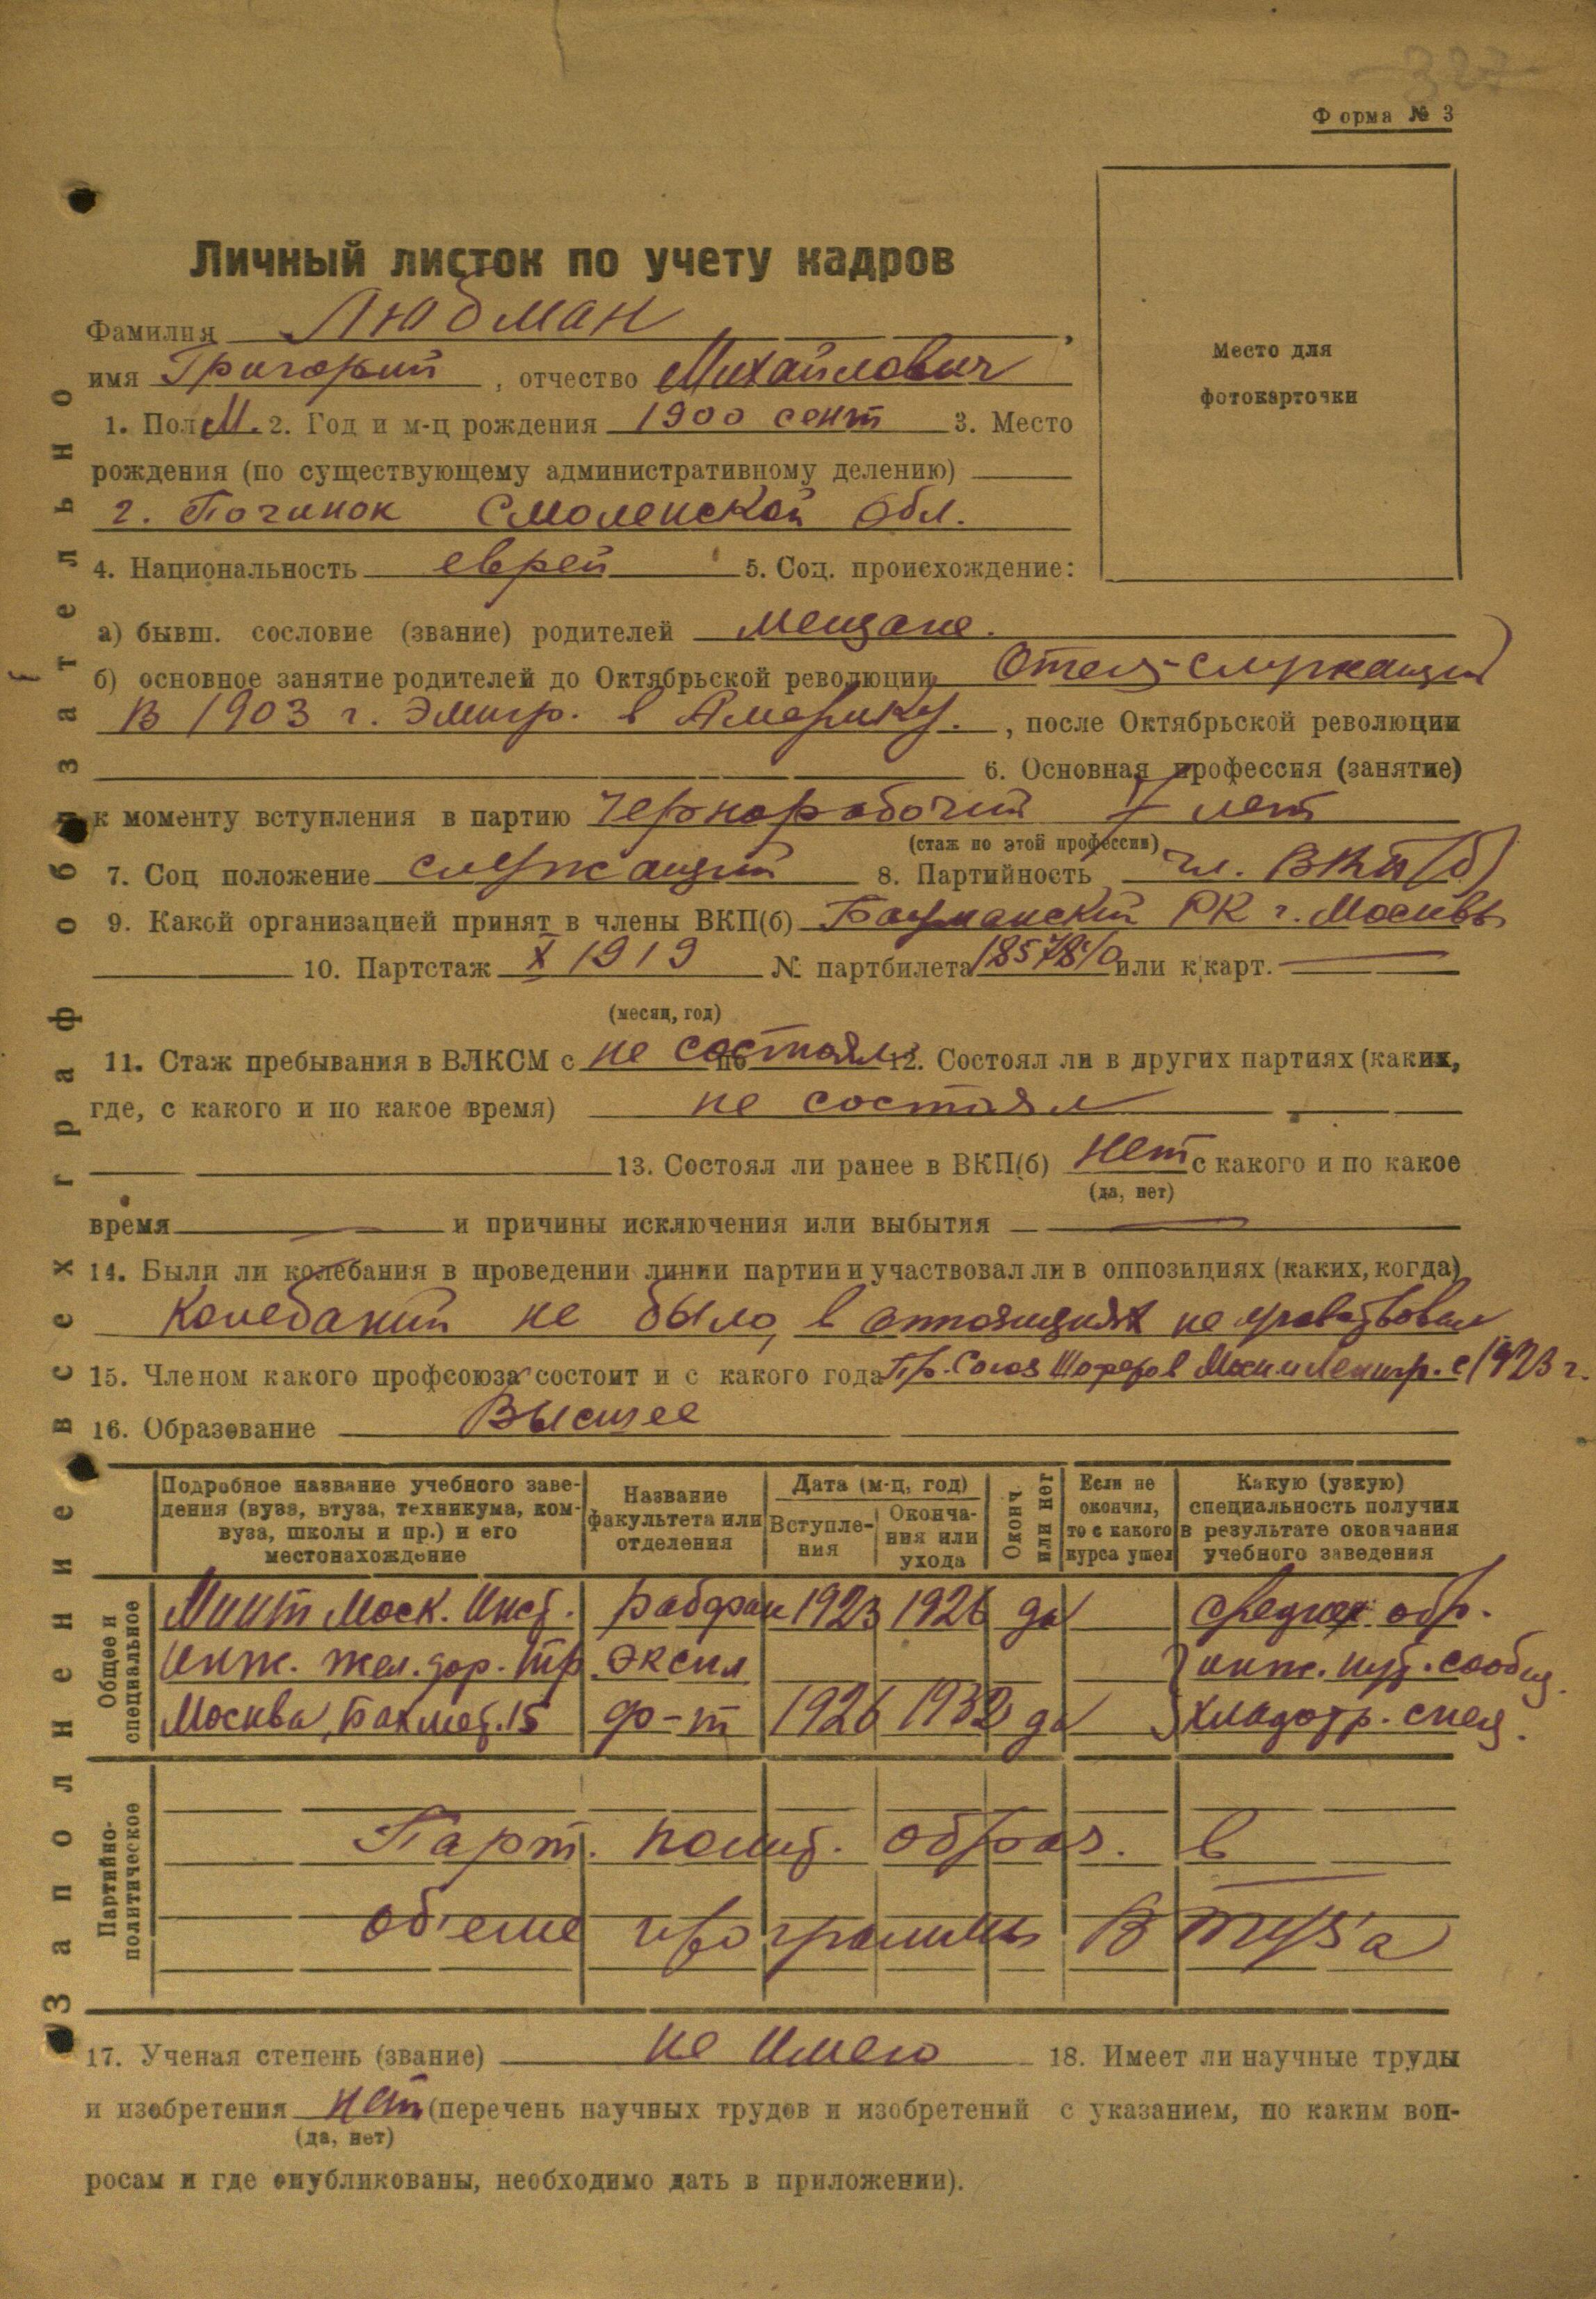 327
Форма № 3
Личный листок по учету кадров
Место для
фотокарточки
Фамилия Любман,
имя Григорий, отчество Михайлович
1. Пол М. 2. Год и м-ц рождения 1900 сент 3. Место
рождения (по существующему административному делению)
г. Починок Смоленской обл.
4. Национальность еврей 5. Соц. происхождение:
а) бывш. сословие (звание) родителей мещане.
б) основное занятие родителей до Октябрьской революции Отец-служащий
В 1903 г. Эмигр. в Америку., после Октябрьской революции
6. Основная профессия (занятие)
к моменту вступления в партию Чернорабочий 7 лет
(стаж по этой профессии)
7. Соц положение служащий 8. Партийность чл. ВКП(б)
9. Какой организацией принят в члены ВКП(б) Бауманский РК г. Москвы
10. Партстаж X 1919 № партбилета 1857810 или к карт. —
(месяц, год)
11. Стаж пребывания в ВЛКСМ с не состоял по 12. Состоял ли в других партиях (каких,
где, с какого и по какое время) не состоял
13. Состоял ли ранее в ВКП(б) нет с какого и по какое
(да, нет)
время — и причины исключения или выбытия —
14. Были ли колебания в проведении линии партии и участвовал ли в оппозициях (каких, когда)
Колебаний не было, в оппозициях не участвовал
15. Членом какого профсоюза состоит и с какого года Пр. Союз Шоферов Москвы и Ленингр. с 1923 г.
16. Образование Высшее
Подробное название учебного заведения (вуза, втуза, техникума, комвуза, школы и пр.) и его местонахождение
Название факультета или отделения
Дата (м-ц, год)
Вступления
Окончания или ухода
Оконч. или нет
Если не окончил, то с какого курса ушел
Какую (узкую) специальность получил в результате окончания учебного заведения
Общее и специальное
Миит Моск. Инст. рабфак 1923 1926 да среднее обр.
Инж. жел. дор. тр. экспл инж. пут. сообщ.
Москва, Бахмет. 15 ф-т 1926 1932 да хладотр. спец.
Партийно-политическое
Парт. полит. образ. в
об'еме программы Втуз'а
17. Ученая степень (звание) не имею 18. Имеет ли научные труды
и изобретения нет (перечень научных трудов и изобретений с указанием, по каким воп-
(да, нет)
росам и где опубликованы, необходимо дать в приложении).
Заполнение всех граф обязательно